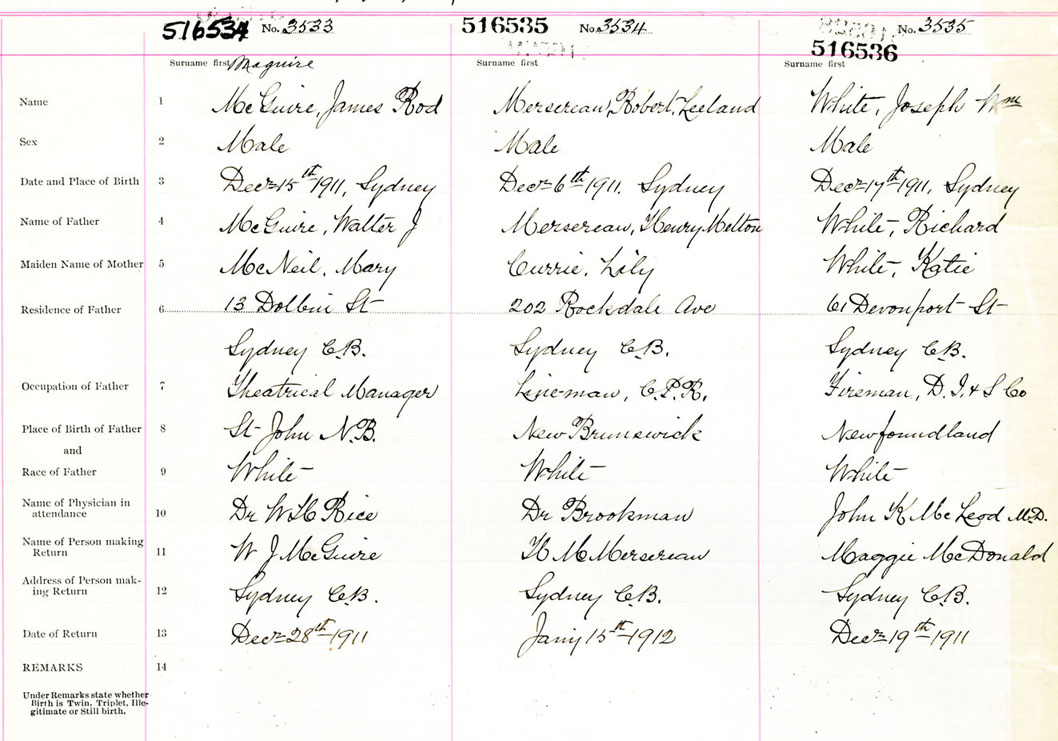 516534 No. 3533 516535 No. 3534 No. 3535
516536
Surname first Maguire Surname first Surname first
Name 1 McGuire, James Rod Mersereau, Robert Leeland White, Joseph Wm
Sex 2 Male Male Male
Date and Place of Birth 3 Decr 15th 1911, Sydney Decr 6th 1911. Sydney Decr 17th 1911, Sydney
Name of Father 4 McGuire, Walter J Mersereau, Henry Melton White, Richard
Maiden Name of Mother 5 McNeil, Mary Currie, Lily White, Katie
Residence of Father 6 13 Dolbin St 202 Rockdale Ave 61 Devonport St
Sydney C.B. Sydney C.B. Sydney C.B.
Occupation of Father 7 Theatrical Manager Lineman, C.P.R. Fireman, D.I.& S Co
Place of Birth of Father 8 St John N.B. New Brunswick Newfoundland
and
Race of Father 9 White White White
Name of Physician in
attendance 10 Dr W H Rice Dr Brookman John K McLeod M.D.
Name of Person making
Return 11 W J McGuire H M Mersereau Maggie McDonald
Address of Person mak-
ing Return 12 Sydney C.B. Sydney C.B. Sydney C.B.
Date of Return 13 Decr 28th 1911 Jany 15th 1912 Decr 19th 1911
REMARKS 14
Under Remarks state whether
Birth is Twin, Triplet, Ille-
gitimate or Still birth.